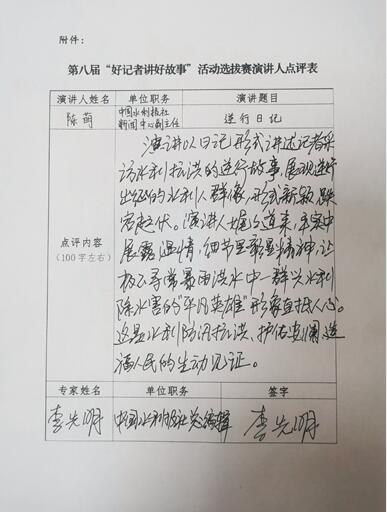 附件：
第八届“好记者讲好故事”活动选拔赛演讲人点评表
演讲人姓名 单位职务 演讲题目
陈萌 中国水利报社 新闻中心副主任 逆行日记
点评内容
（100字左右）
演讲以日记形式讲述记者采
访水利抗洪的逆行故事，展现逆行
出征的水利人群像，形式新颖，跌
宕起伏。演讲人娓娓道来，平实中
展露温情，细节里彰显精神，让
极不寻常暴雨洪水中一群兴水利
除水害的“平凡英雄”形象直抵人心。
这是水利防汛抗洪、护佑安澜、造
福人民的生动见证。
专家姓名 单位职务 签字
李先明 中国水利报社总编辑 李先明